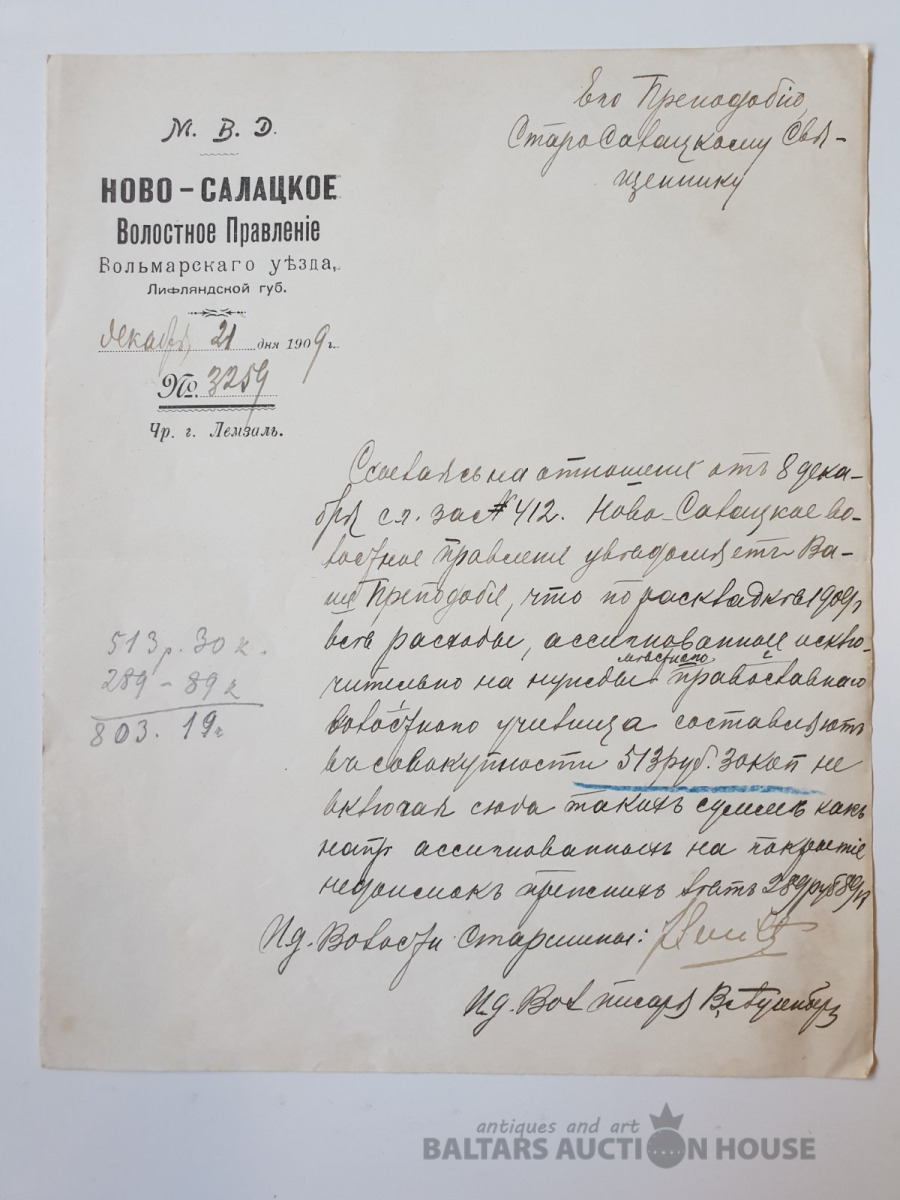 М. В. Д.
НОВО-САЛАЦКОЕ
Волостное Правленіе
Вольмарскаго уѣзда,
Лифляндской губ.
декабря 21 дня 1909 г.
№ 3259
Чр. г. Лемзаль.
Его Преподобію
СтароСалацкому Свя-
щеннику
Ссылаясь на отношеніе отъ 8 дека-
бря с.г. за № 412. Ново-Салацкое во-
лостное правленіе увѣдомляетъ Ва-
ше Преподобіе, что по раскладкѣ 1909 г
всѣ расходы, ассигнованные исклю-
чительно на нужды мѣстнаго православнаго
волостного училища составляютъ
въ совокупности 513 руб. 30 коп не
включая сюда такихъ суммъ какъ
напр ассигнованныхъ на покрытіе
недоимокъ прежнихъ лѣтъ 289 руб 89 к
513 р. 30 к.
289 - 89 к
803. 19 к
И.д. Волостн Старшины:
И.д. Вол писаря
antiques and art
BALTARS AUCTION HOUSE